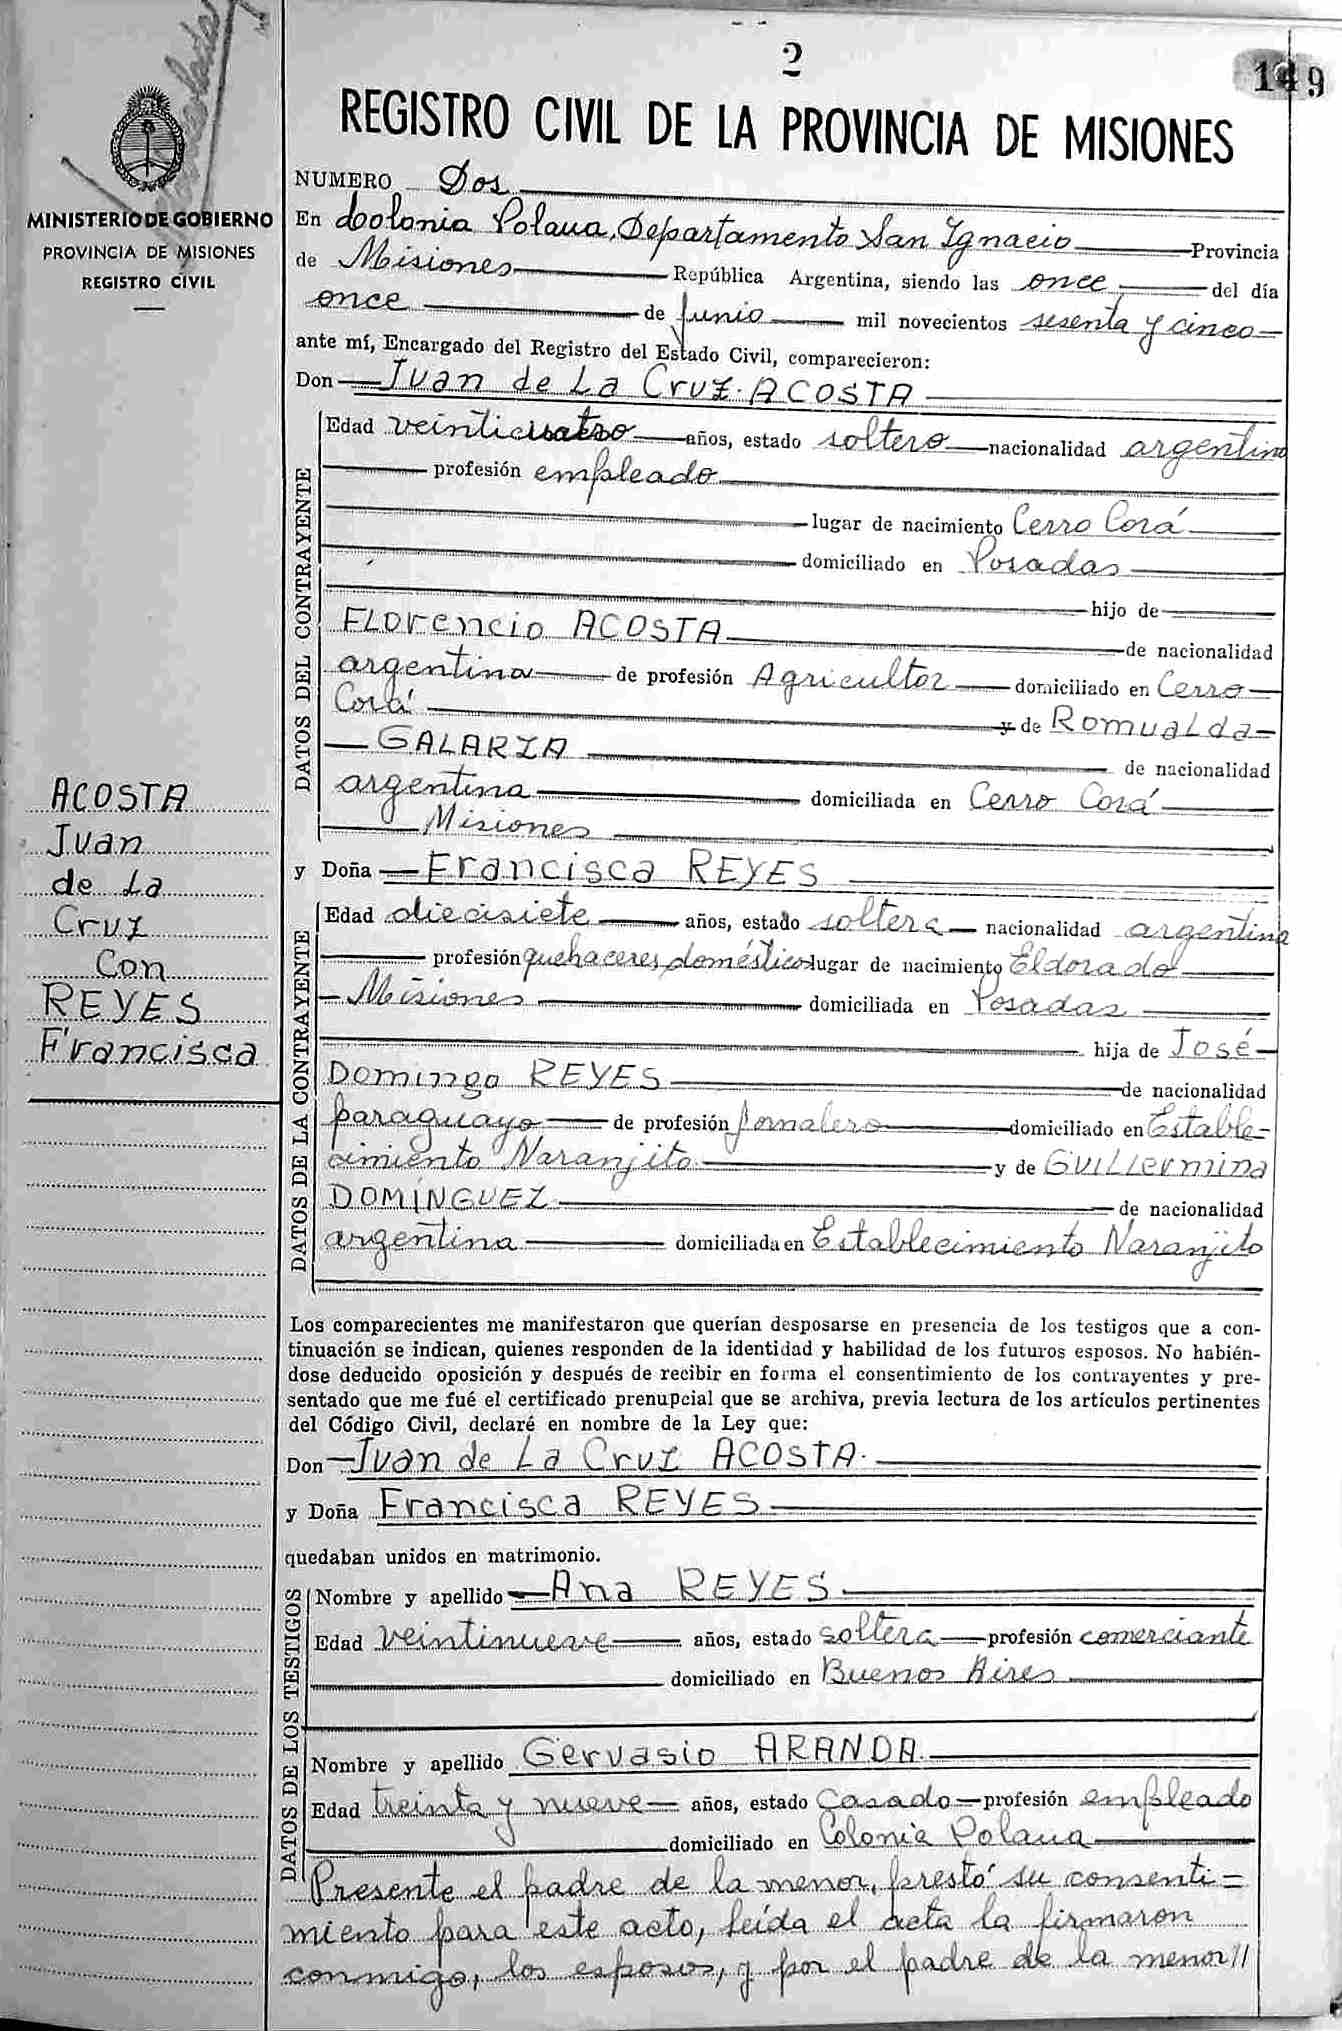 2
149
REGISTRO CIVIL DE LA PROVINCIA DE MISIONES
MINISTERIO DE GOBIERNO
PROVINCIA DE MISIONES
REGISTRO CIVIL
NUMERO Dos
En Colonia Polana, Departamento San Ignacio Provincia
de Misiones República Argentina, siendo las once del día
once de Junio mil novecientos sesenta y cinco
ante mí, Encargado del Registro del Estado Civil, comparecieron:
Don Juan de La Cruz ACOSTA
DATOS DEL CONTRAYENTE
Edad veinticuatro años, estado soltero nacionalidad argentino
profesión empleado
lugar de nacimiento Cerro Corá
domiciliado en Posadas
hijo de
FLorencio ACOSTA
de nacionalidad
argentina de profesión Agricultor domiciliado en Cerro
Corá y de RomuaLda
GALARZA
de nacionalidad
argentina domiciliada en Cerro Corá
Misiones
ACOSTA
Juan
de La
Cruz
Con
REYES
Francisca
y Doña Francisca REYES
DATOS DE LA CONTRAYENTE
Edad diecisiete años, estado soltera nacionalidad argentina
profesión quehaceres domésticos lugar de nacimiento Eldorado
Misiones domiciliada en Posadas
hija de José
Domingo REYES de nacionalidad
paraguayo de profesión Jornalero domiciliado en Estable-
cimiento Naranjito y de GuiLLermina
DOMÍNGUEZ de nacionalidad
argentina domiciliada en Establecimiento Naranjito
Los comparecientes me manifestaron que querían desposarse en presencia de los testigos que a con-
tinuación se indican, quienes responden de la identidad y habilidad de los futuros esposos. No habién-
dose deducido oposición y después de recibir en forma el consentimiento de los contrayentes y pre-
sentado que me fué el certificado prenupcial que se archiva, previa lectura de los artículos pertinentes
del Código Civil, declaré en nombre de la Ley que:
Don Juan de La Cruz ACOSTA.
y Doña Francisca REYES
quedaban unidos en matrimonio.
DATOS DE LOS TESTIGOS
Nombre y apellido Ana REYES
Edad veintinueve años, estado soltera profesión comerciante
domiciliado en Buenos Aires
Nombre y apellido Gervasio ARANDA.
Edad treinta y nueve años, estado Casado profesión empleado
domiciliado en Colonia Polana
Presente el padre de la menor, prestó su consenti=
miento para este acto, leída el acta la firmaron
conmigo, los esposos, y por el padre de la menor//